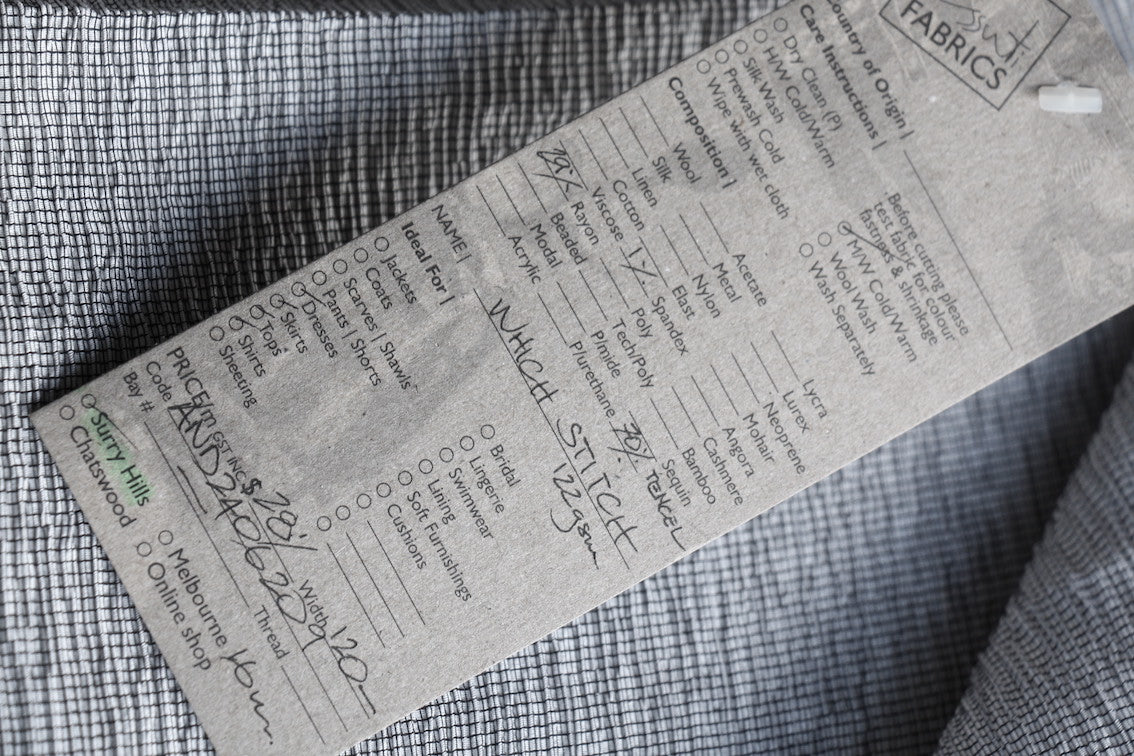 ssuti
FABRICS
ountry of Origin |
Care Instructions |
Dry Clean (P)
H/W Cold/Warm
Silk Wash
Prewash Cold
Wipe with wet cloth
Before cutting please
test fabric for colour
fastness & shrinkage
M/W Cold/Warm
Wool Wash
Wash Separately
Composition |
Wool
Silk
Linen
Cotton
Viscose
29% Rayon
Beaded
Modal
Acrylic
Acetate
Metal
Nylon
Elast
1% Spandex
Poly
Tech/Poly
P/mide
Plurethane
Lycra
Lurex
Neoprene
Mohair
Angora
Cashmere
Bamboo
Sequin
70% TENCEL
NAME | WHICH STITCH
122gsm
Ideal For |
Jackets
Coats
Scarves | Shawls
Pants | Shorts
Dresses
Skirts
Tops
Shirts
Sheeting
Bridal
Lingerie
Swimwear
Lining
Soft Furnishings
Cushions
PRICE/m GST INC $ 28/ Width 120
Code AND2406209
Bay # Thread
Surry Hills
Chatswood
Melbourne
Online shop